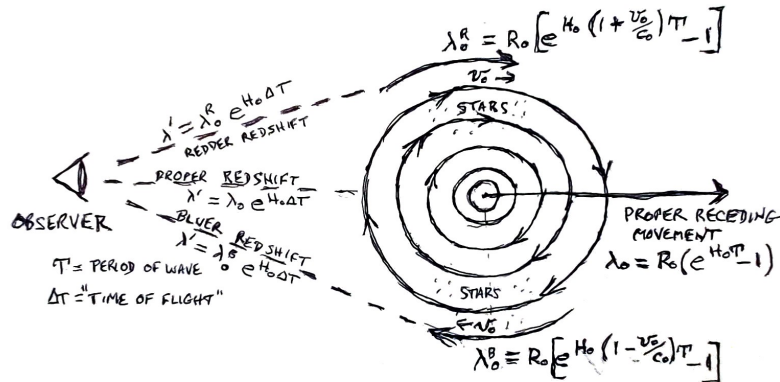 λ₀ᴿ = R₀[e^{H₀(1+v₀/c₀)T}-1]
v₀ →
STARS
λ' = λ₀ᴿ e^{H₀ΔT}
REDDER REDSHIFT
PROPER REDSHIFT
λ' = λ₀ e^{H₀ΔT}
OBSERVER
BLUER REDSHIFT
λ' = λ₀ᴮ e^{H₀ΔT}
T = PERIOD OF WAVE
ΔT = "TIME OF FLIGHT"
PROPER RECEDING
MOVEMENT
λ₀ = R₀(e^{H₀T}-1)
STARS
← v₀
λ₀ᴮ = R₀[e^{H₀(1-v₀/c₀)T}-1]